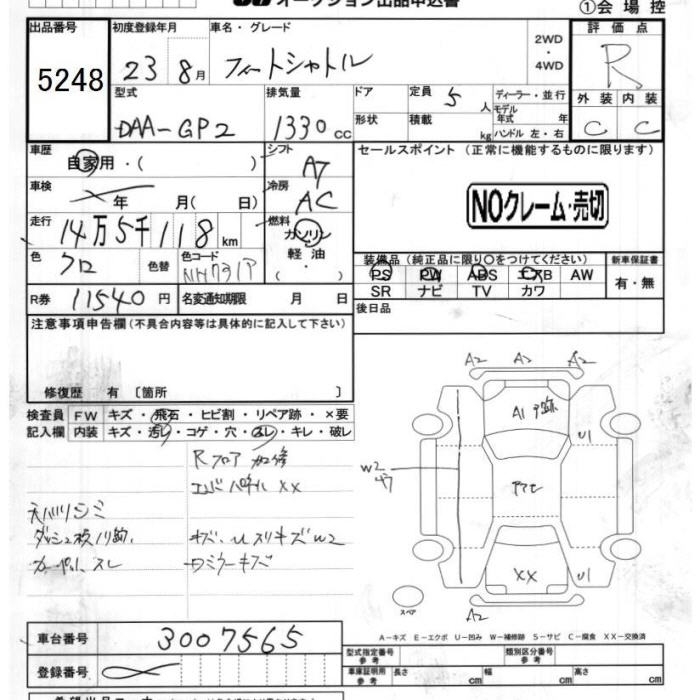 オークション出品申込書
①会場控
出品番号
5248
初度登録年月
23 8月
車名・グレード
フィートシャトル
2WD
・
4WD
評価点
R
外装 内装
C C
型式
DAA-GP2
排気量
1330 cc
ドア
定員 5 人
形状
積載 kg
ディーラー・並行
モデル年式 年
ハンドル 左・右
車歴
自家用・( )
シフト
A7
車検
年 月( 日)
冷房
AC
走行
14万5千118 km
燃料
ガソリン
軽油
・( )
色
クロ
色替
色コード
NH731P
R券 11540 円
名変通知期限 月 日
セールスポイント (正常に機能するものに限ります)
NOクレーム・売切
装備品 (純正品に限り○をつけてください)
PS PW ABS エアB AW
SR ナビ TV カワ
新車保証書
有・無
後日品
注意事項申告欄 (不具合内容等は具体的に記入して下さい)
修復歴 有 〔箇所 〕
検査員記入欄
FW キズ・飛石・ヒビ割・リペア跡・×要
内装 キズ・汚レ・コゲ・穴・スレ・キレ・破レ
Rフロア 加修
エンドパネル XX
天バリシミ
ダッシュ板ノリ跡
カーペット スレ
キズ、Uスリキズ W2
ロミラーキズ
A2 A2 A2
A1 ヲ跡
U1
W2
アケモ
XX
U1
A2
スペア
A-キズ E-エクボ U-凹み W-補修跡 S-サビ C-腐食 XX-交換済
車台番号 3007565
登録番号
型式指定番号 参考
類別区分番号 参考
車庫証明用 参考 長さ cm 幅 cm 高さ cm